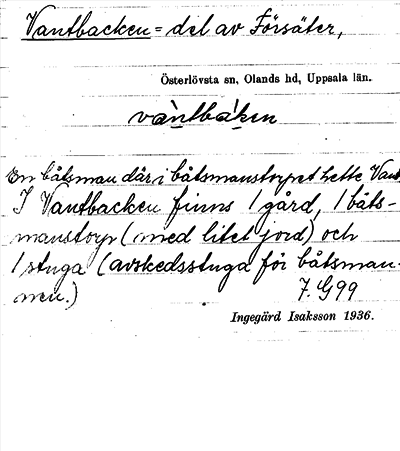 Vantbacken = del av Försäter,
Österlövsta sn, Olands hd, Uppsala län.
va̱ǹtbá̱ḵin
En båtsman där i båtsmanstorpet hette Vant.
I Vantbacken finns 1 gård, 1 båts-
manstorp (med litet jord) och
1 stuga (avskedsstuga för båtsman-
nen.)
7. G 99
Ingegärd Isaksson 1936.